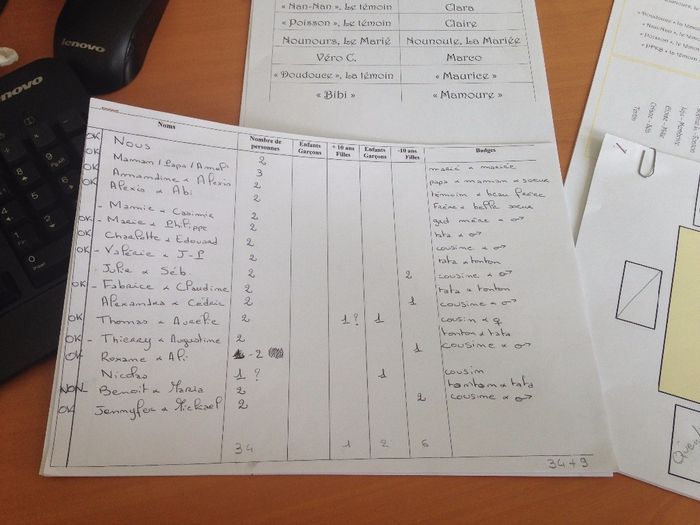 « Nan-Nan », Le témoin Clara
« Poisson », Le témoin Claire
Nounours, Le Marié Nounoute, La Mariée
Véro C. Marco
« Doudouce », La témoin « Maurice »
« Bibi » « Mamoure »
lenovo
lenovo
Noms Nombre de personnes Enfants Garçons + 10 ans Filles Enfants Garçons -10 ans Filles Badges
OK Nous 2 marié & mariée
OK Maman / Papa / 3 papa & maman & soeur
OK Amandine & Alexis 2 témoin & beau frère
OK Alexis & Abi 2 Frère & belle soeur
- Mamie & Casimir 2 gd mère & ♂
OK - Marie & Philippe 2 tata & ♂
OK Charlotte & Edouard 2 cousine & ♂
OK - Valérie & J-P 2 tata & tonton
Julie & Séb 2 2 cousine & ♂
OK - Fabrice & Claudine 2 tata & tonton
Alexandra & Cédric 2 1 cousine & ♂
OK Thomas & Aurelie 2 1 ? 1 cousin & ♀
OK - Thierry & Augustine 2 tonton & tata
OK Roxane & Ali - 2 1 cousine & ♂
Nicolas 1 ? 1 cousin
NON Benoit & Maria 2 tonton & tata
OK Jennyfer & Mickael 2 2 cousine & ♂
34 1 2 6
34 + 9